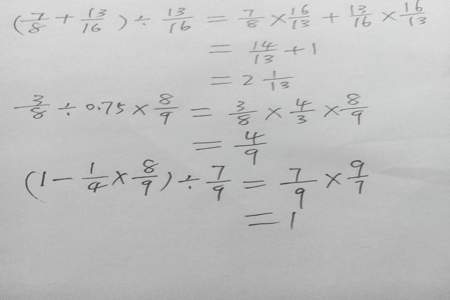 (7/8 + 13/16) ÷ 13/16 = 7/8 × 16/13 + 13/16 × 16/13
= 14/13 + 1
= 2 1/13
3/8 ÷ 0.75 × 8/9 = 3/8 × 4/3 × 8/9
= 4/9
(1 - 1/4 × 8/9) ÷ 7/9 = 7/9 × 9/7
= 1